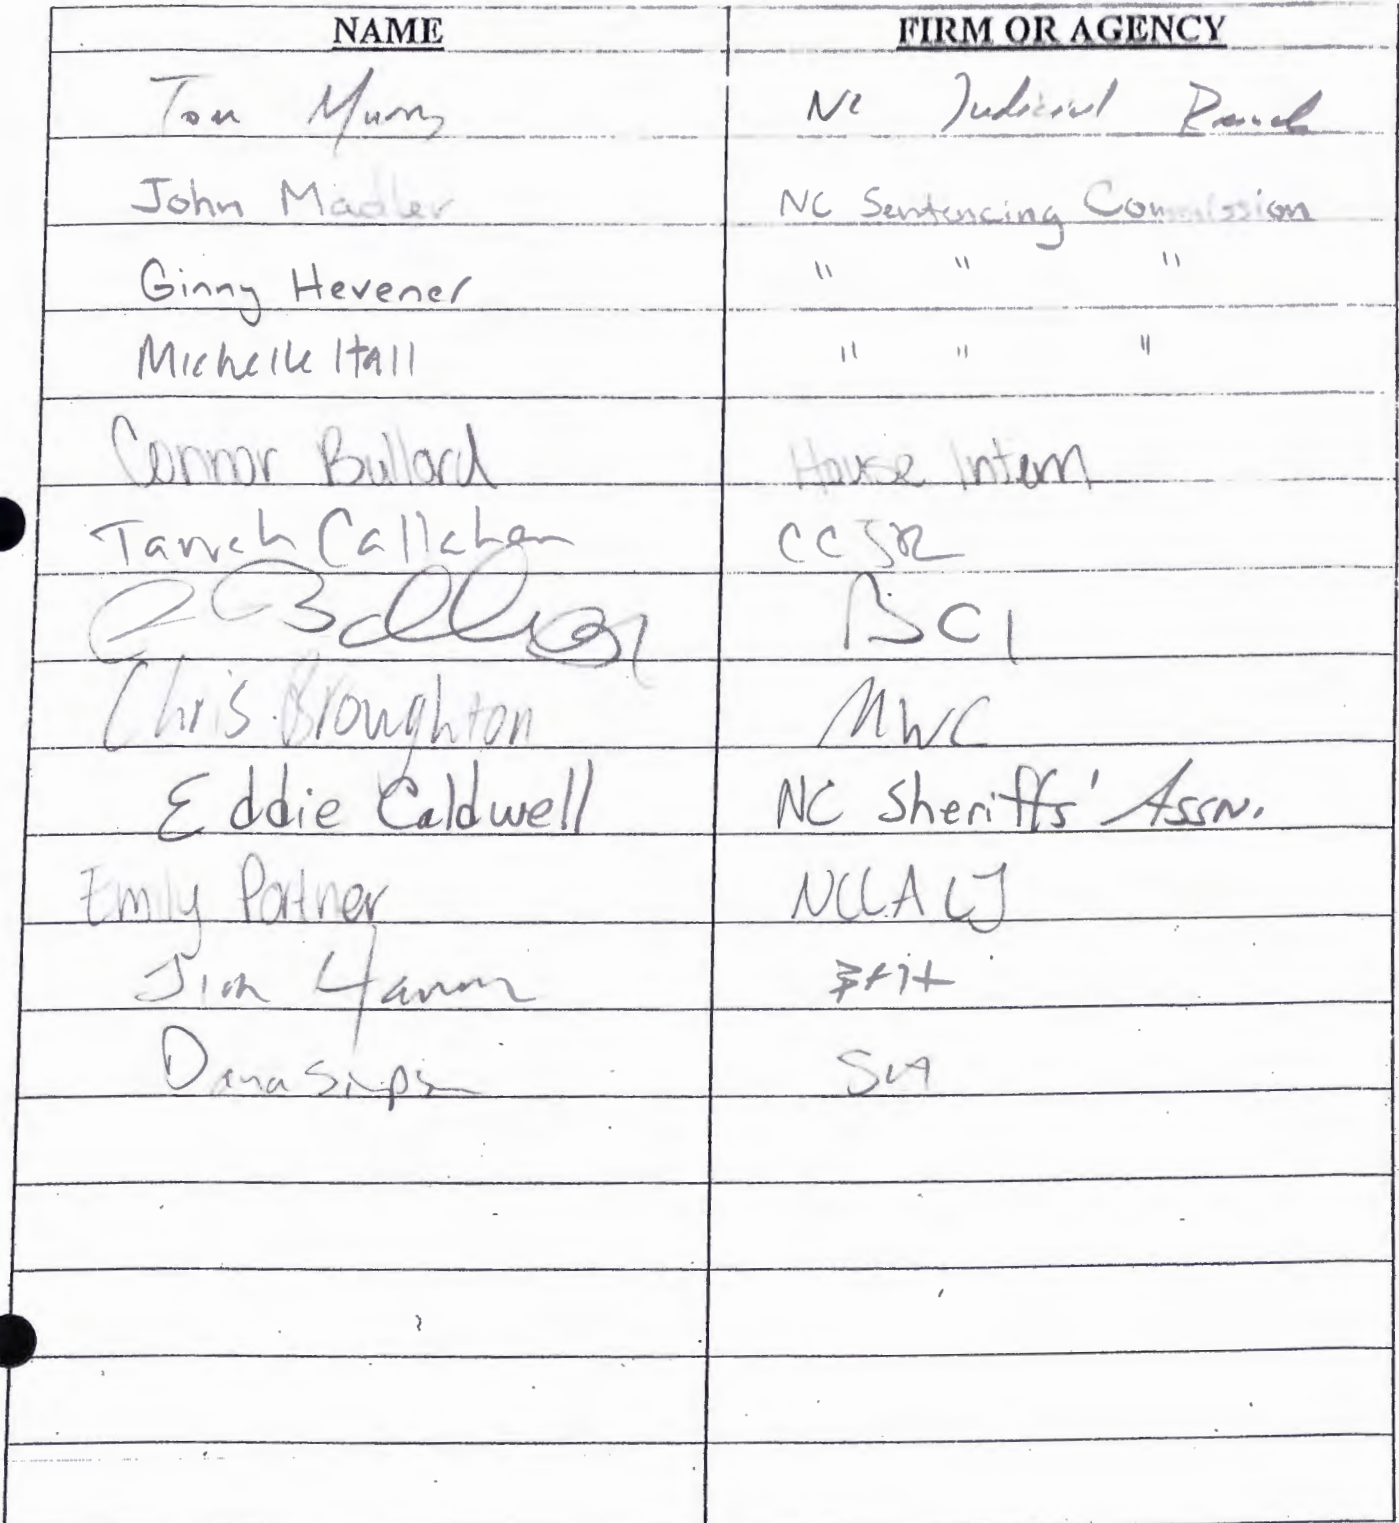 NAME FIRM OR AGENCY
Tom Murry NC Judicial Branch
John Madler NC Sentencing Commission
Ginny Hevener " " "
Michelle Hall " " "
Connor Bullard House Intern
Tarrah Callahan CCJR
BCI
Chris Broughton MWC
Eddie Caldwell NC Sheriffs' Assn.
Emily Portner NCLALJ
Jim
Dana Simpson SLA